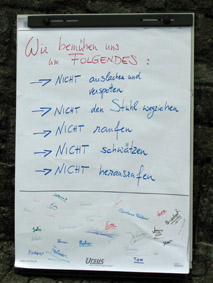 Wir bemühen uns
um FOLGENDES:
→ NICHT auslachen und
verspoten
→ NICHT den Stuhl wegziehen
→ NICHT raufen
→ NICHT schwätzen
→ NICHT herausrufen
URSUS
Tom